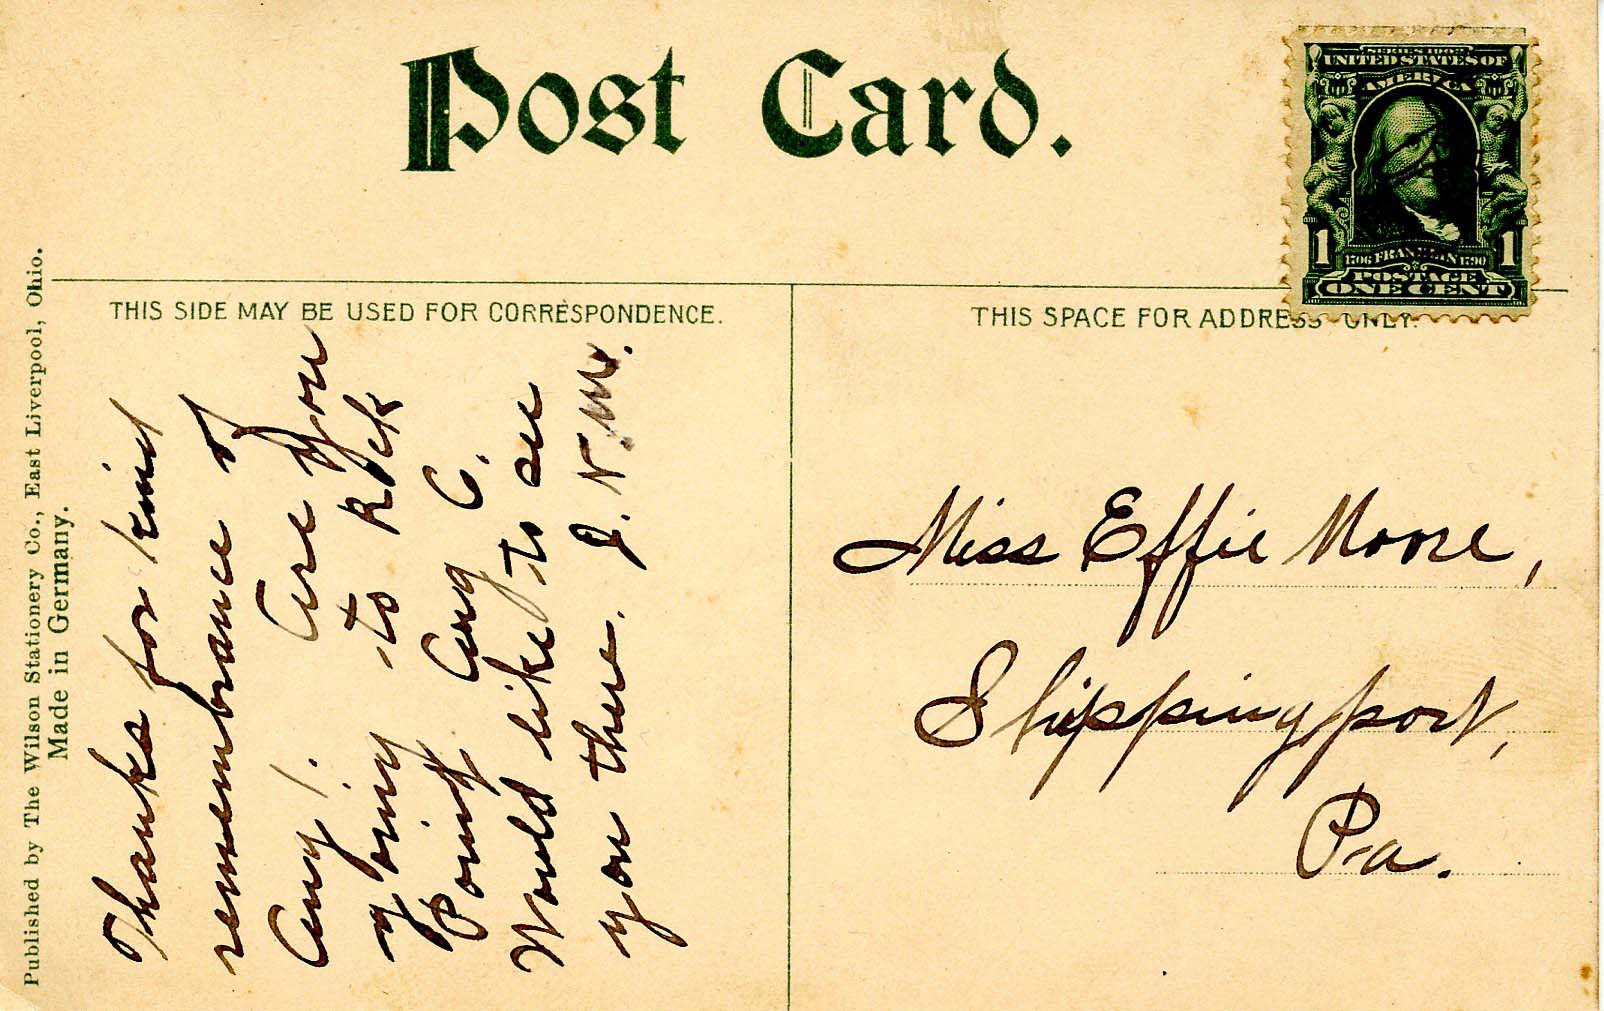 Post Card.
SERIES 1902
UNITED STATES OF
AMERICA
1706 FRANKLIN 1790
1 1
POSTAGE
ONE CENT
THIS SIDE MAY BE USED FOR CORRESPONDENCE.
THIS SPACE FOR ADDRESS ONLY.
Published by The Wilson Stationery Co., East Liverpool, Ohio.
Made in Germany.
Thanks for kind
remembrance of
Aug 1. Are you
going to Rock
Point Aug 6.
Would like to see
you there. J. N. M.
Miss Effie Moore,
Shippingport,
Pa.